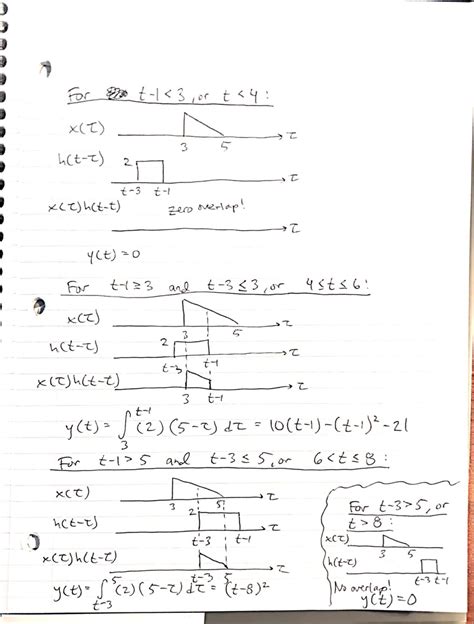 For t-1<3, or t<4:
x(τ)
τ
3 5
h(t-τ) 2
τ
t-3 t-1
x(τ)h(t-τ) zero overlap!
τ
y(t)=0
For t-1≥3 and t-3≤3, or 4≤t≤6:
x(τ)
τ
3 5
h(t-τ) 2
τ
t-3 t-1
x(τ)h(t-τ)
τ
3 t-1
y(t)= ∫₃^{t-1} (2)(5-τ)dτ = 10(t-1)-(t-1)²-21
For t-1>5 and t-3≤5, or 6<t≤8:
x(τ)
τ
3 5
h(t-τ) 2
τ
t-3 t-1
x(τ)h(t-τ)
τ
t-3 5
y(t)= ∫_{t-3}^5 (2)(5-τ)dτ = (t-8)²
For t-3>5, or
t>8:
x(τ)
3 5
h(t-τ)
t-3 t-1
No overlap!
y(t)=0